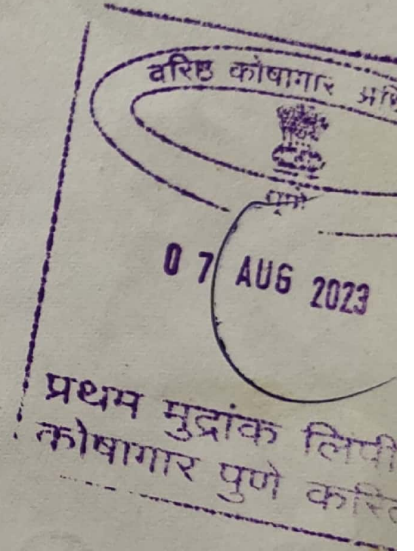 वरिष्ठ कोषागार
पुणे
07 AUG 2023
प्रथम मुद्रांक लिपी
कोषागार पुणे करि